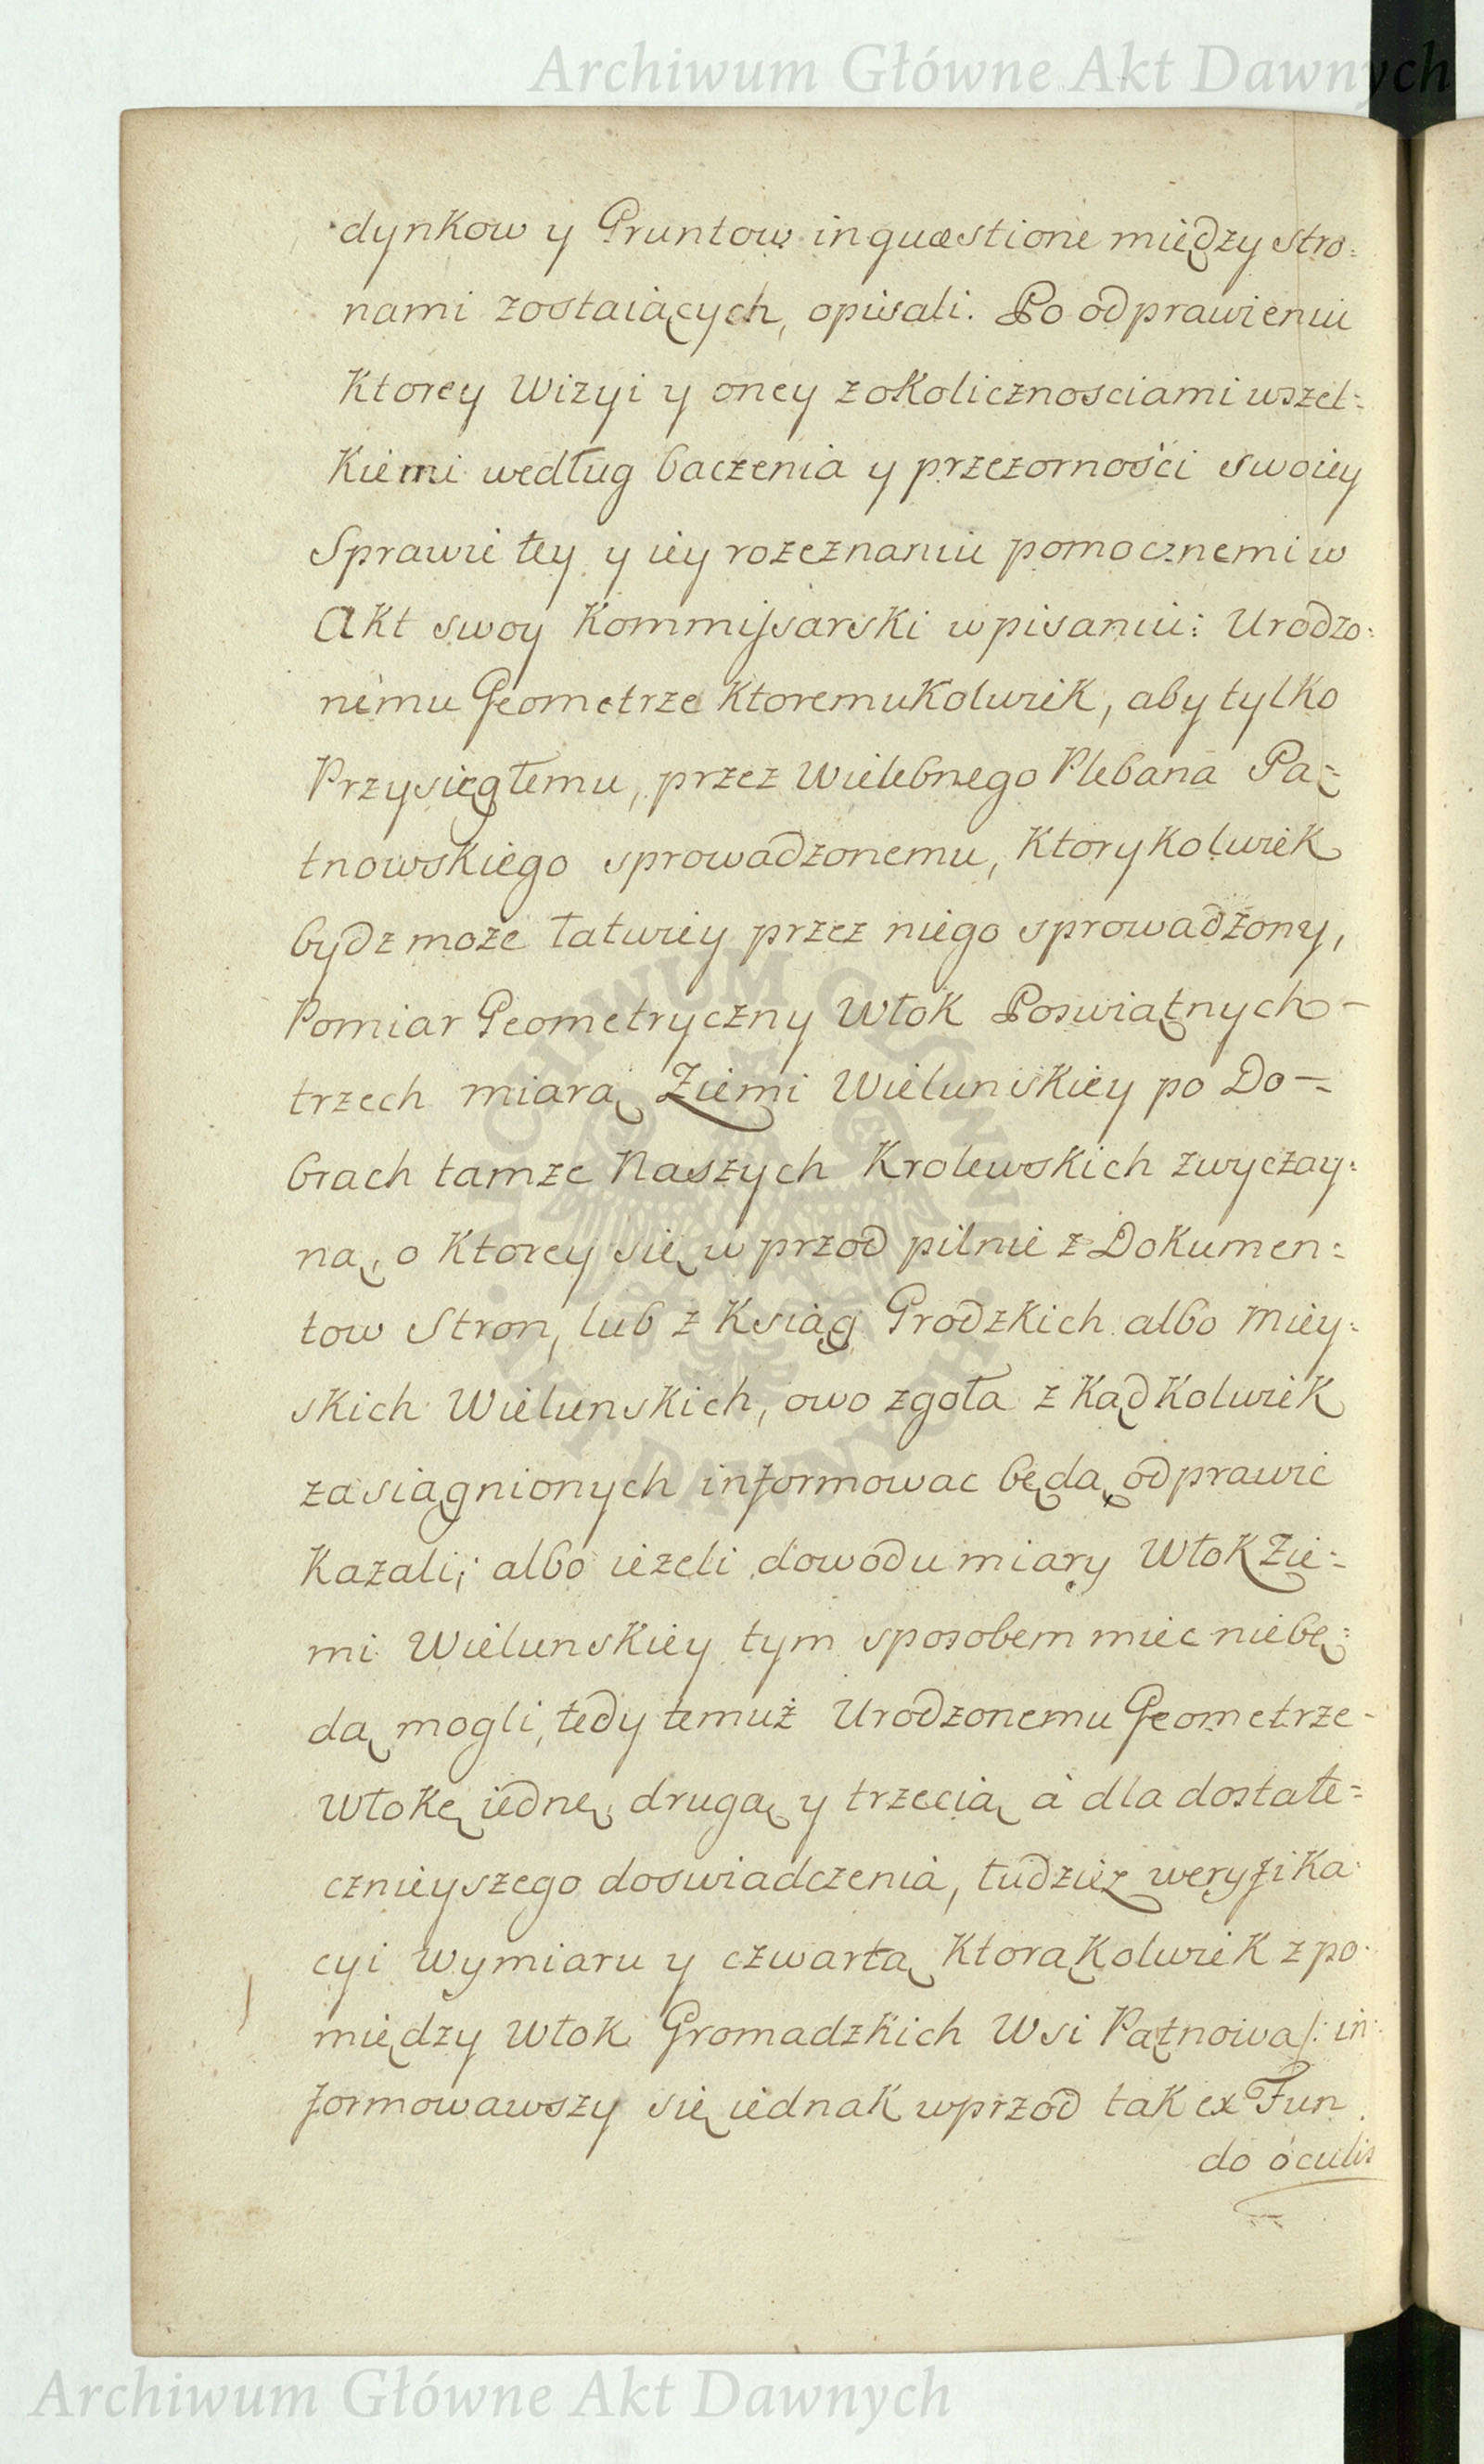 Archiwum Główne Akt Dawnych
dynkow y Gruntow in quæstione między stro=
nami zostaiących, opisali. Po odprawieniu
Ktorey Wizyi y oney z okolicznosciami wszel=
kiemi według baczenia y przezorności swoiey
Sprawie tey y iey rozeznaniu pomocznemi w
Akt swoy Kommissarski wpisaniu: Urodzo=
nemu Geometrze Ktoremukolwiek, aby tylko
Przysięgłemu, przez Wielebnego Plebana Pą=
tnowskiego sprowadzonemu, Ktorykolwiek
bydz może łatwiey przez niego sprowadzony,
Pomiar Geometryczny Włok Poswiątnych –
trzech miarą Ziemi Wielunskiey po Do=
brach tamze Naszych Krolewskich zwyczay=
ną, o Ktorey się wprzod pilnie z Dokumen=
tow Stron, lub z Ksiąg Grodzkich albo Miey=
skich Wielunskich, owo zgoła z Kądkolwiek
zasiągnionych informowac będą, odprawic
Kazali; albo ieżeli dowodu miary Włok Zie=
mi Wielunskiey tym sposobem miec niebę=
dą mogli, tedy temuż Urodzonemu Geometrze –
Włokę iednę, drugą y trzecią a dla dostate=
cznieyszego doswiadczenia, tudzież weryfika=
cyi Wymiaru y czwartą Ktorąkolwiek z po=
między Włok Gromadzkich Wsi Pątnowa /: in=
formowawszy się iednak wprzod tak ex Fun
do oculis
Archiwum Główne Akt Dawnych